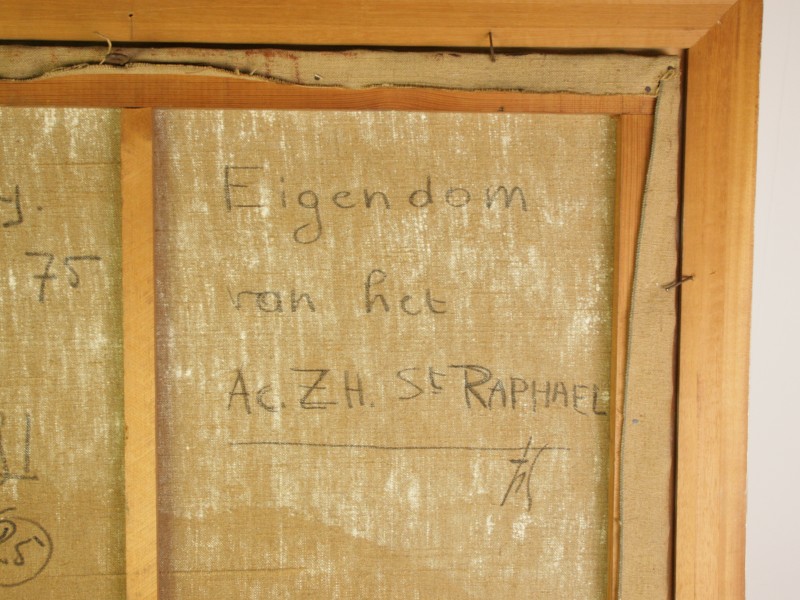 y.
75
Eigendom
van het
Ac. Z.H. St RAPHAEL
75
25